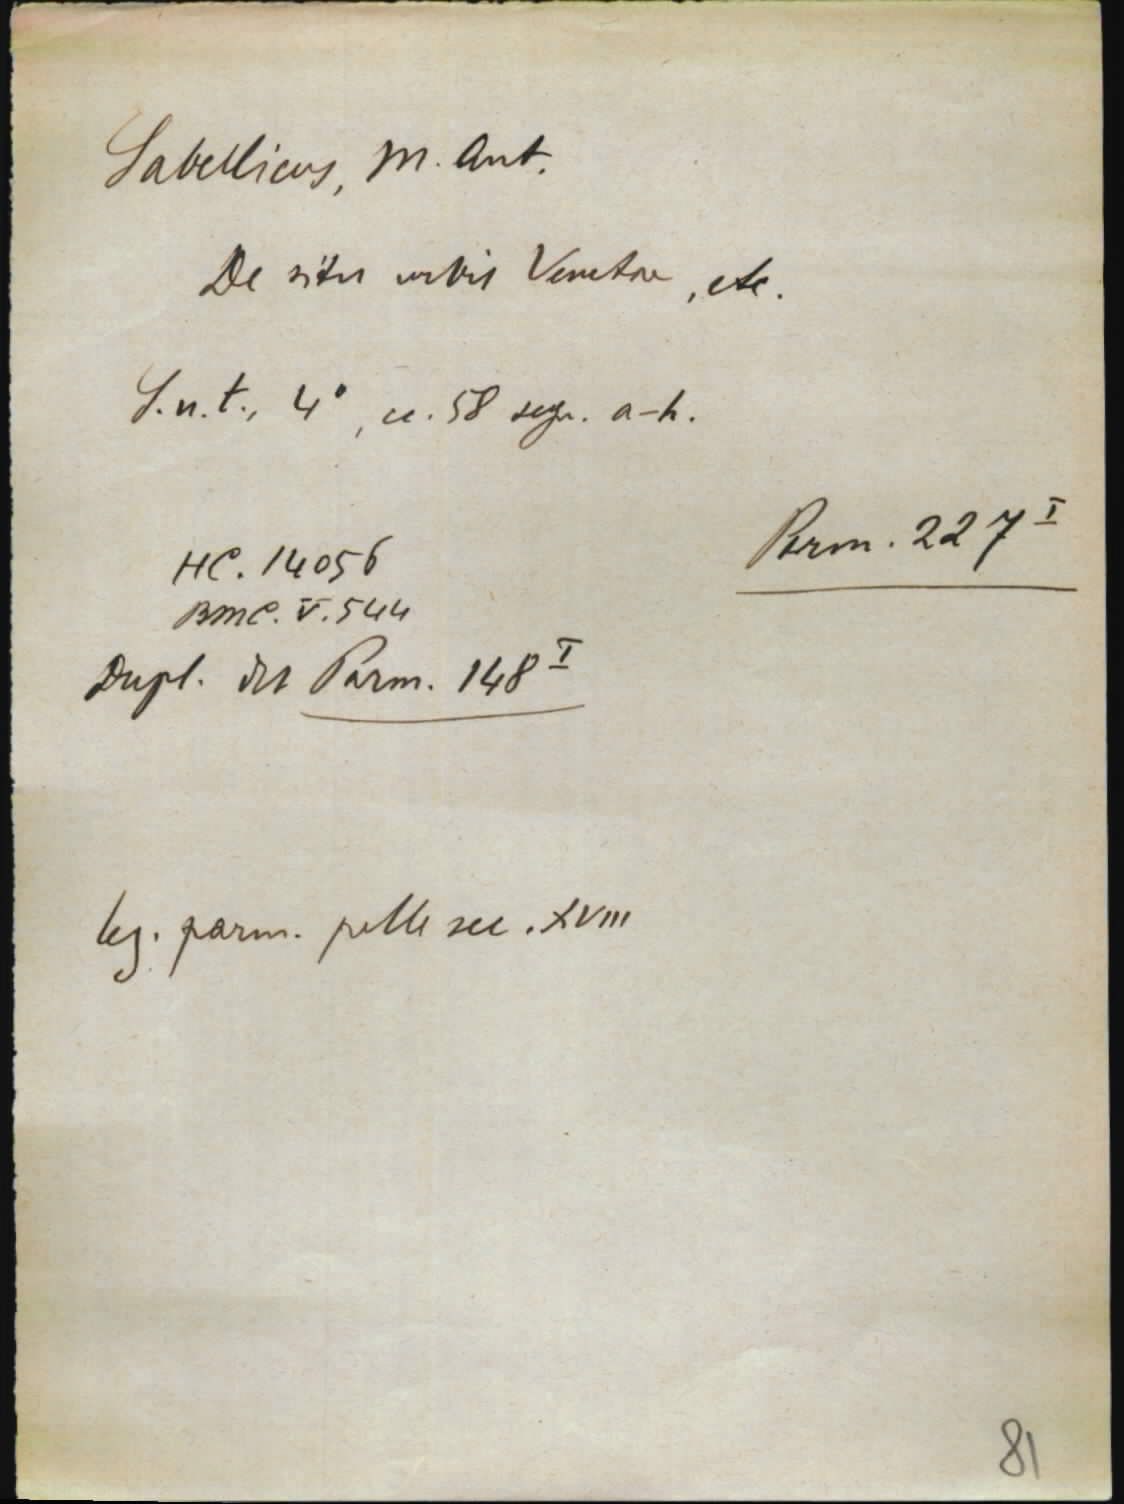 Sabellicus, M. Ant.
De situ urbis Venetae, etc.
S.n.t., 4°, cc. 58 segn. a-h.
Parm. 227 I
HC. 14056
BMC. V. 544
Dupl. del Parm. 148 I
leg. parm. pelle sec. XVIII
81